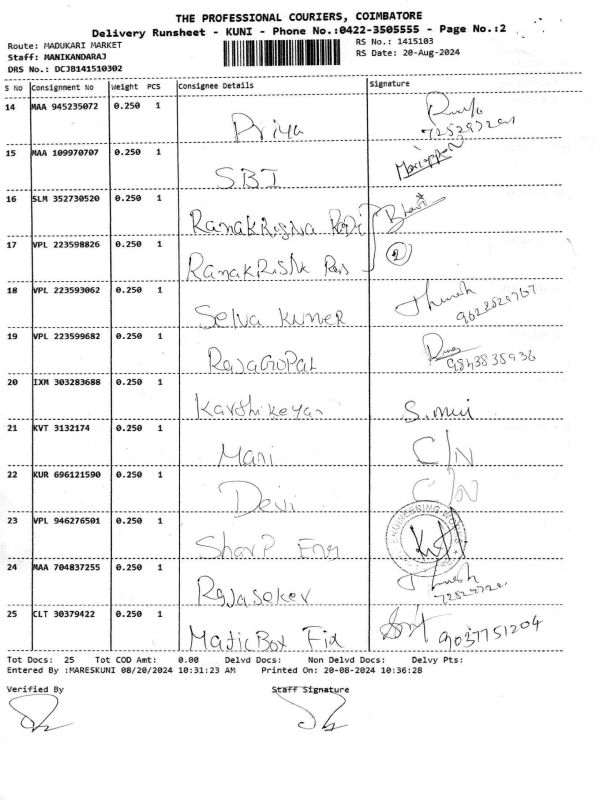 THE PROFESSIONAL COURIERS, COIMBATORE
Delivery Runsheet - KUNI - Phone No.:0422-3505555 - Page No.:2
Route: MADUKARI MARKET
RS No.: 1415103
Staff: MANIKANDARAJ
RS Date: 20-Aug-2024
DRS No.: DCJB141510302
S No Consignment No Weight PCS Consignee Details Signature
14 MAA 945235072 0.250 1
Priya
15 MAA 109970707 0.250 1
SBI
16 SLM 352730520 0.250 1
RamaKRISHNA
17 VPL 223598826 0.250 1
②
18 VPL 223593062 0.250 1
Selva Kumer
19 VPL 223599682 0.250 1
RajaGOPAL
9843835936
20 IXM 303283688 0.250 1
Karthikeyan
21 KVT 3132174 0.250 1
Mani C/N
22 KUR 696121590 0.250 1
Devi C/N
23 VPL 946276501 0.250 1
Sharp Eng
24 MAA 704837255 0.250 1
Rajaseker
25 CLT 30379422 0.250 1
MajicBox Fix 9037751204
Tot Docs: 25 Tot COD Amt: 0.00 Delvd Docs: Non Delvd Docs: Delvy Pts:
Entered By :MARESKUNI 08/20/2024 10:31:23 AM Printed On: 20-08-2024 10:36:28
Verified By Staff Signature